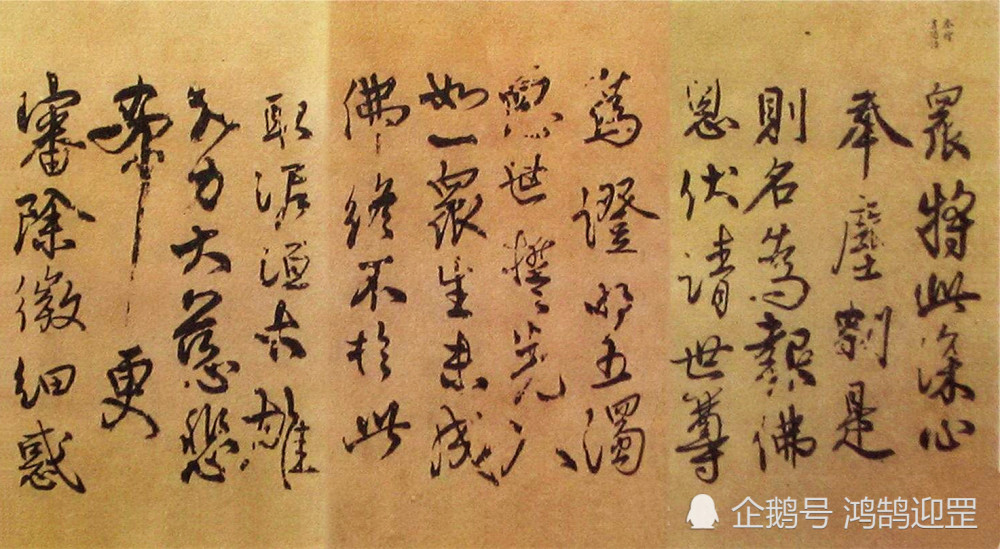 衆將此深心
奉塵剎是
則名爲報佛
恩伏請世尊
爲證明五濁
惡世誓先入
如一衆生未成
佛終不於此
取泥洹大雄
大力大慈悲
希更
審除微細惑
企鹅号 鸿鹄迎罡